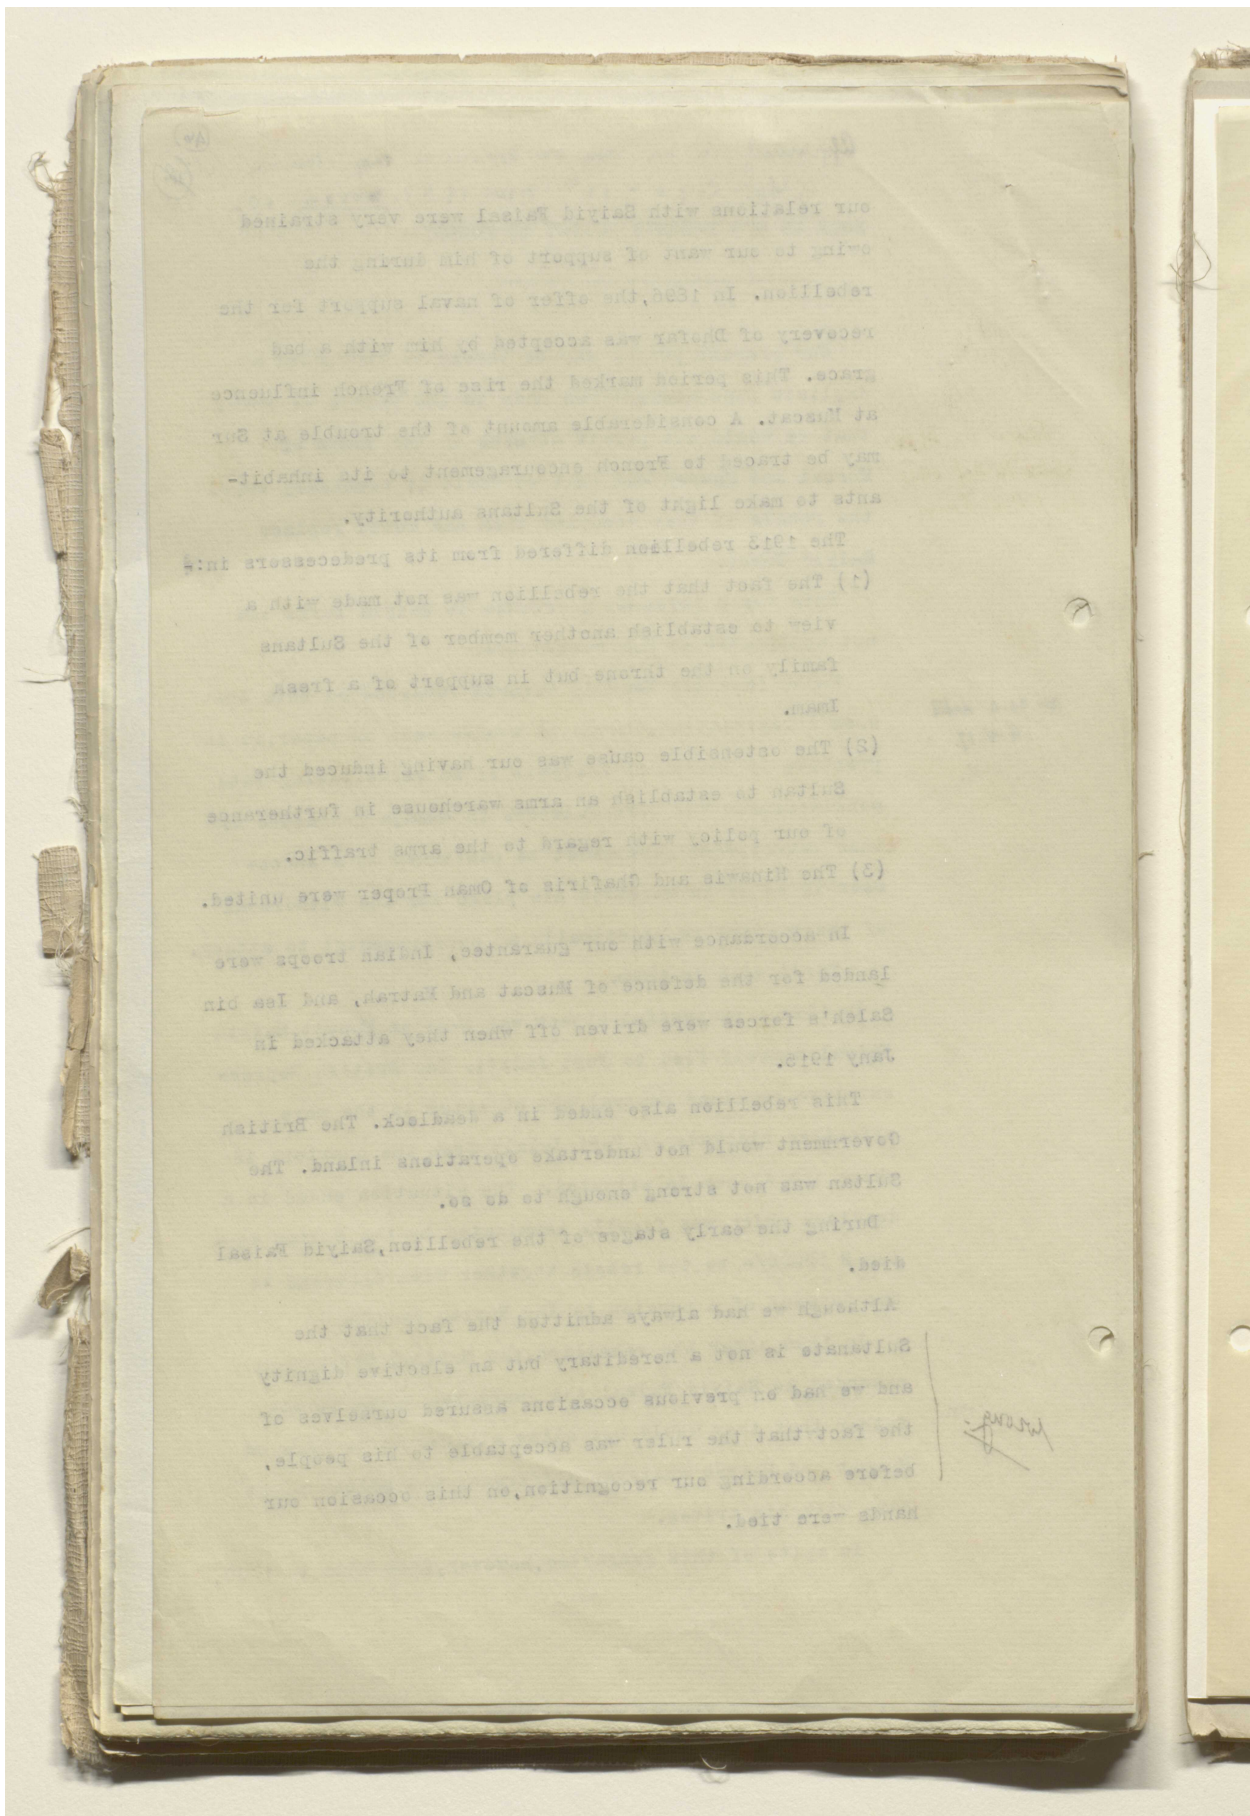 our relations with Saiyid Faisal were very strained
owing to our want of support of him during the
rebellion. In 1896,the offer of naval support for the
recovery of Dhofar was accepted by him with a bad
grace. This period marked the rise of French influence
at Muscat. A considerable amount of the trouble at Sur
may be traced to French encouragement to its inhabit-
ants to make light of the Sultans authority.
The 1913 rebellion differed from its predecessors in:-
(1) The fact that the rebellion was not made with a
view to establish another member of the Sultans
family on the throne but in support of a fresh
Imam.
(2) The ostensible cause was our having induced the
Sultan to establish an arms warehouse in furtherance
of our policy with regard to the arms traffic.
(3) The Hinawis and Ghafiris of Oman Proper were united.
In accordance with our guarantee, Indian troops were
landed for the defence of Muscat and Matrah, and Isa bin
Saleh's forces were driven off when they attacked in
Jany 1915.
This rebellion also ended in a deadlock. The British
Government would not undertake operations inland. The
Sultan was not strong enough to do so.
During the early stages of the rebellion,Saiyid Faisal
died.
Although we had always admitted the fact that the
Sultanate is not a hereditary but an elective dignity
and we had on previous occasions assured ourselves of
the fact that the ruler was acceptable to his people,
before according our recognition,on this occasion our
hands were tied.
wrong.